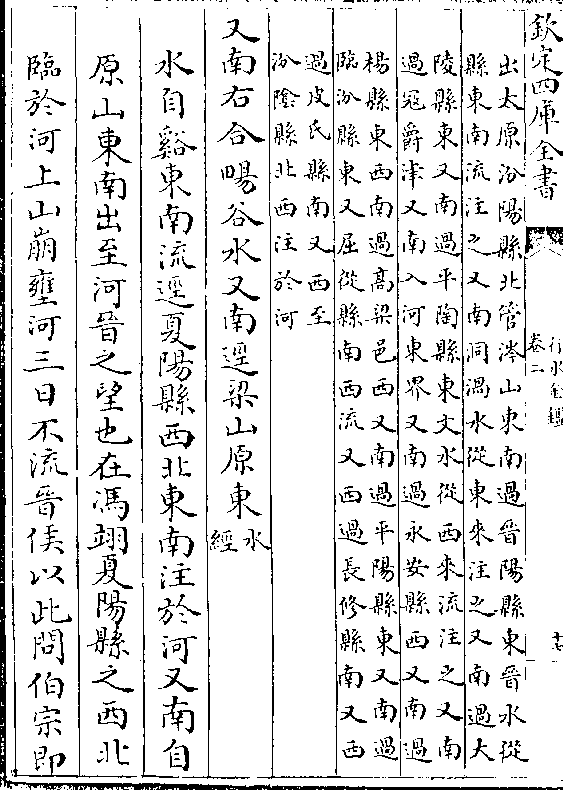 欽定四庫全書
行水金鑑
卷二
十七
出太原汾陽縣北管涔山東南過晉陽縣東晉水從
縣東南流注之又南洞渦水從東來注之又南過大
陵縣東又南過平陶縣東文水從西來流注之又南
過冠爵津又南入河東界又南過永安縣西又南過
楊縣東西南過高梁邑西又南過平陽縣東又南過
臨汾縣東又屈從縣南西流又西過長修縣南又西
過皮氏縣南又西至
汾陰縣北西注於河
又南右合暘谷水又南逕梁山原東水經
水自谿東南流逕夏陽縣西北東南注於河又南自
原山東南出至河晉之望也在馮翊夏陽縣之西北
臨於河上山崩壅河三日不流晉侯以此問伯宗即